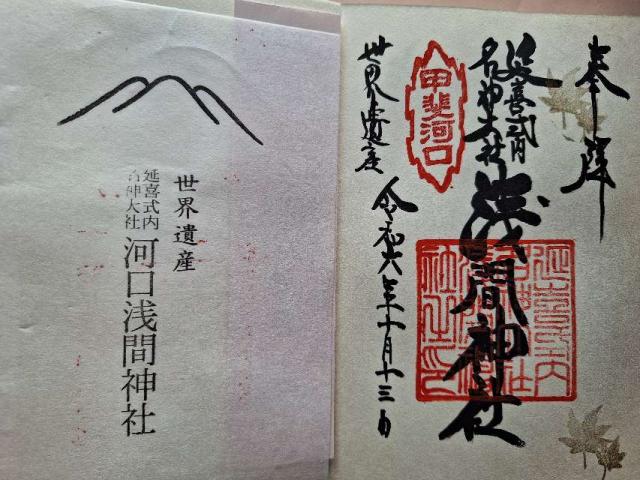 世界遺産
延喜式内
名神大社
河口浅間神社
奉拝
延喜式内
名神大社
浅間神社
甲斐河口
世界遺産
令和六年十月十三日
延喜式内
名神大社